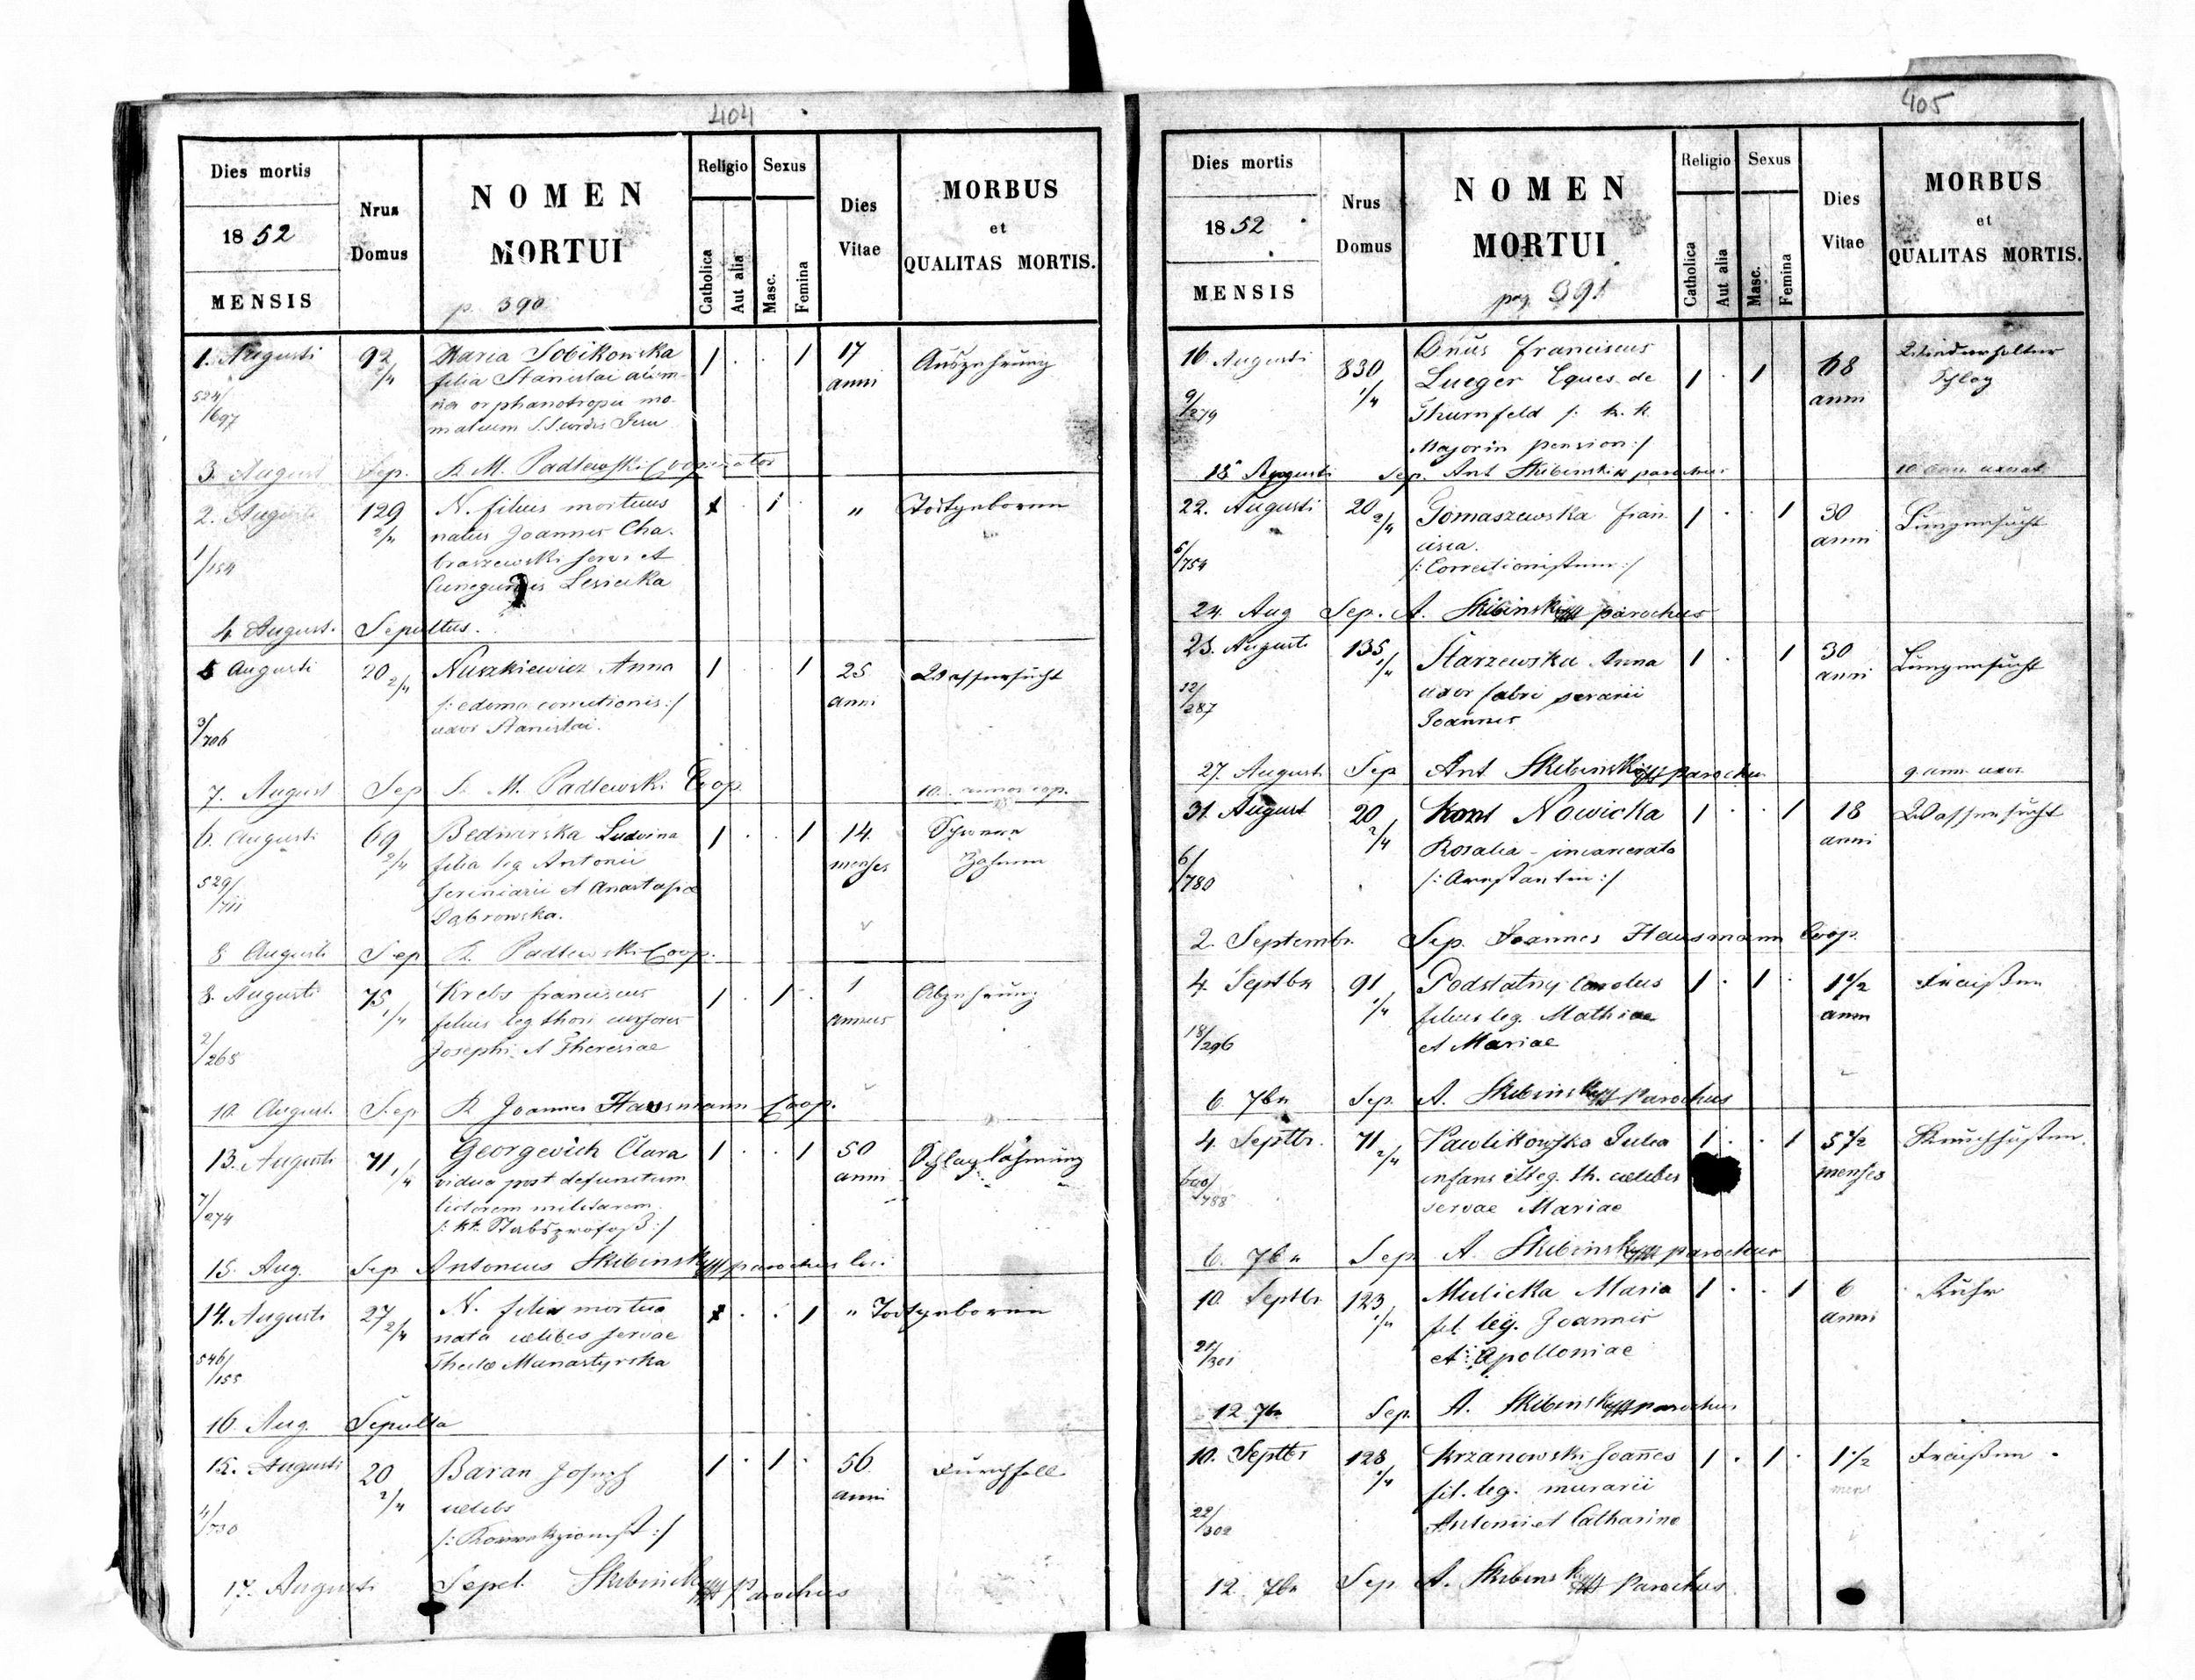 404
Dies mortis
1852
MENSIS
Nrus Domus
NOMEN MORTUI
p. 390
Religio
Catholica
Aut alia
Sexus
Masc.
Femina
Dies Vitae
MORBUS
et
QUALITAS MORTIS.
1. Augusti 92 2/4 Maria Sobikowska 1 . . 1 17 anni Auszehrung
524/697
filia Stanislai
orphanotropii
3. August Sep. R. M. Padlewski Cooperator
2. Augusti 129 2/4 N. filius mortuus 1 . 1 . " Todtgeboren
1/154
natus Joannes Cha-
braszewski servi et
Cunegundis Lesiecka
4. August. Sepultus.
5 Augusti 20 2/4 Nuszkiewicz Anna 1 . . 1 25 anni Wassersucht
3/706
/: e domo correctionis :/
uxor Stanislai.
7. August Sep R. M. Padlewski Coop.
6. Augusti 69 2/4 Bednarska Ludvina 1 . . 1 14 menses Schwere Zahnen
529/711
filia leg Antonii
et Anastasiae
Dąbrowska.
8 Augusti Sep R. Padlewski Coop.
8. Augusti 75 1/4 Krebs Franciscus 1 . 1 . 1 annus Abzehrung
2/268
filius leg. thori
Josephi et Theresiae
10 August. Sep R Joannes Hausmann Coop.
13. Augusti 71 1/4 Georgevich Clara 1 . . 1 50 anni Schlaglähmung
7/274
vidua post defunctum
lictorem militarem
/: kk. Stabsprofoß :/
15. Aug. Sep Antonius Skibinski parochus loci
14. Augusti 27 2/4 N. filia mortua 1 . . 1 " Todtgeboren
546/155
nata caelibis servae
Theclae Manastyrska
16 Aug. Sepulta
15. Augusti 20 2/4 Baran Joseph 1 . 1 . 56 anni Durchfall
caelebs
17. Augusti Sepel. Skibinski parochus
405
Dies mortis
1852
MENSIS
Nrus Domus
NOMEN MORTUI
pag 391
Religio
Catholica
Aut alia
Sexus
Masc.
Femina
Dies Vitae
MORBUS
et
QUALITAS MORTIS.
16 Augusti 830 1/4 Dnus Franciscus 1 . 1 68 anni
9/279
Lueger Eques de
Thurnfeld /: k. k.
Major in pension :/
18 Augusti Sep. Ant Skibinski parochus
22. Augusti 20 2/4 Tomaszewska Fran- 1 . . 1 30 anni Lungensucht
5/754
cisca.
24. Aug Sep. A. Skibinski parochus
25. Augusti 135 1/4 Starzewska Anna 1 . . 1 30 anni Lungensucht
12/287
uxor fabri serarii
Joannis
27. August Sep Ant Skibinski parochus
31. August 20 2/4 Nowicka 1 . . 1 18 anni Wassersucht
6/780
Rosalia - incarcerata
/: Arrestantin :/
2. Septembr. Sep. Joannes Hausmann Coop.
4. Septbr 91 1/4 Podstatny Carolus 1 . 1 . 1 1/2 anni Fraißen
18/296
filius leg. Mathiae
et Mariae
6. 7br Sep. A. Skibinski Parochus
4. Septbr. 71 2/4 Pawlikowska Julia 1 . . 1 5 1/2 menses Keuchhusten.
infans illeg. th. caelibis
servae Mariae
6. 7br Sep A. Skibinski parochus
10. Septbr 123 1/4 Mulicka Maria 1 . . 1 6 anni Ruhr
21/301
fil. leg. Joannis
et Apolloniae
12 7br Sep. A. Skibinski parochus
10. Septbr 128 1/4 Krzanowski Joañes 1 . 1 . 1 1/2 Fraißen
22/302
fil. leg. murarii
Antonii et Catharina
12. 7br Sep. A. Skibinski Parochus